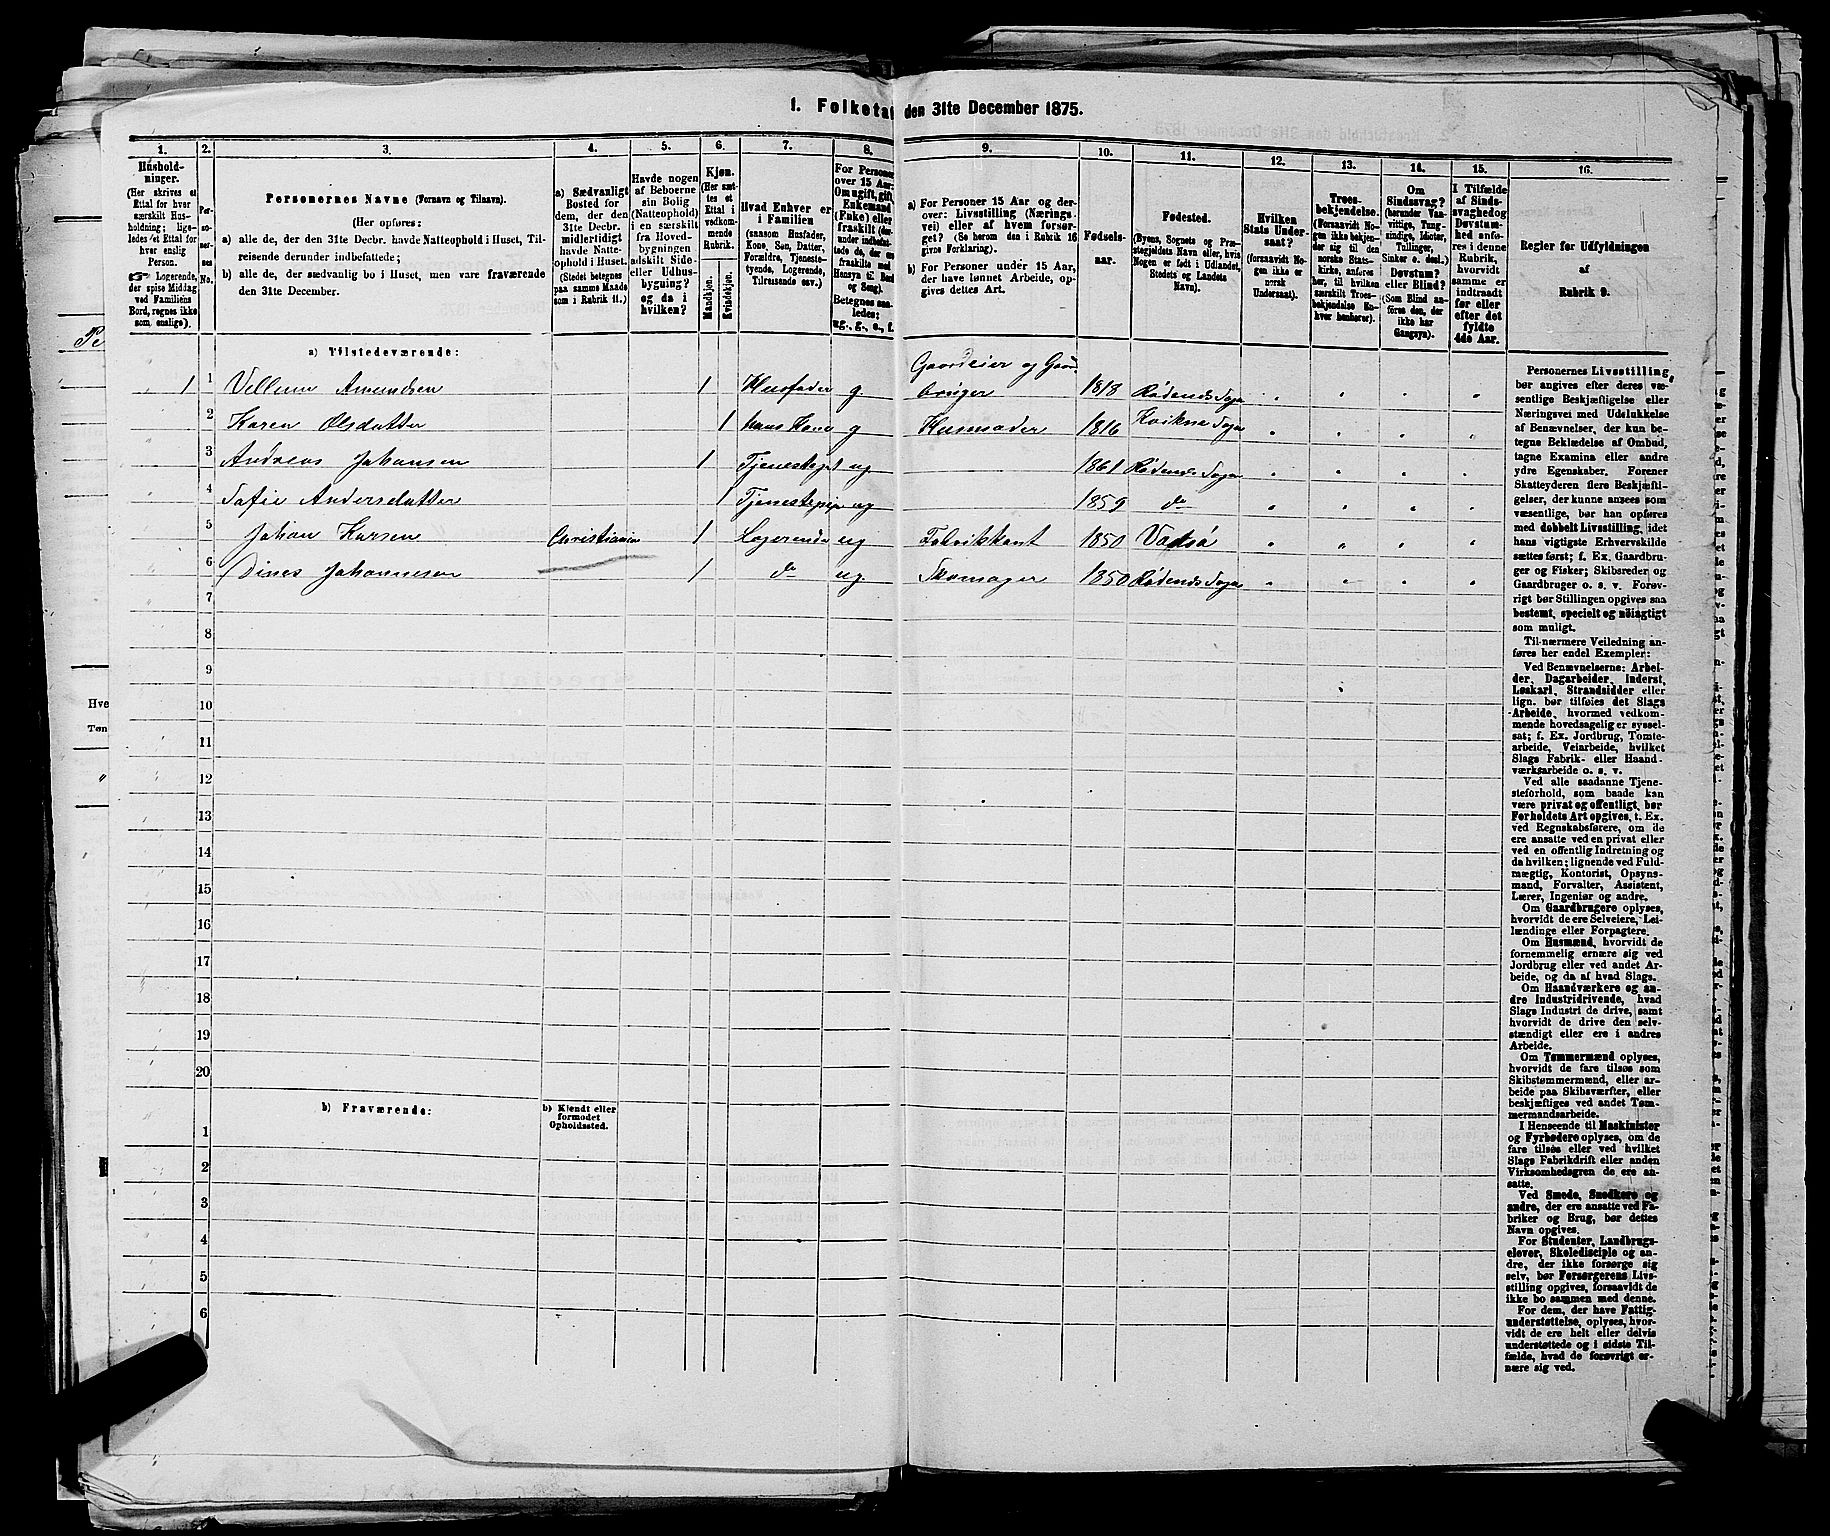 1. Folketæ
den 31te December 1875.
1.
2.
3.
4.
5.
6.
7.
8.
9.
10.
11.
12.
13.
14.
15.
16.
Hushold-
ninger.
(Her skrives et
Ettal for hver
særskilt Hus-
holdning; lige-
ledes et Ettal for
hver enslig
Person.
☞ Logerende,
der spise Middag
ved Familiens
Bord, regnes ikke
som enslige).
Per-
so-
ner-
nes
No.
Personernes Navne (Fornavn og Tilnavn).
(Her opføres:
a) alle de, der den 31te Decbr. havde Natteophold i Huset, Til-
reisende derunder indbefattede;
b) alle de, der sædvanlig bo i Huset, men vare fraværende
den 31te December.
a) Sædvanligt
Bosted for
dem, der den
31te Decbr.
midlertidigt
havde Natte-
ophold i Huset.
(Stedet betegnes
paa samme Maade
som i Rubrik 11.)
Havde nogen
af Beboerne
sin Bolig
(Natteophold)
i en særskilt
fra Hoved-
bygningen
adskilt Side-
eller Udhus-
bygning?
og da i
hvilken?
Kjøn.
(Her sæt-
tes et
Ettal i
vedkom-
mende
Rubrik.
Mandkjøn.
Kvindekjøn.
Hvad Enhver er
i Familien
(saasom Husfader,
Kone, Søn, Datter,
Forældre, Tjeneste-
tyende, Logerende,
Tilreisende osv.)
For Personer
over 15 Aar:
Om ugift, gift,
Enkemand
(Enke) eller
fraskilt (der-
under indbefat-
tede de, der ere
fraskilte med
Hensyn til Bord
og Seng).
Betegnes saa-
ledes:
ug., g., e., f.
a) For Personer 15 Aar og der-
over: Livsstilling (Nærings
vei) eller af hvem forsør-
get? (Se herom den i Rubrik 16
givne Forklaring).
b) For Personer under 15 Aar,
der have lønnet Arbeide, op-
gives dettes Art.
Fødsels-
aar.
Fødested.
(Byens, Sognets og Præ-
stegjeldets Navn eller, hvis
Nogen er født i Udlandet,
Stedets og Landets
Navn).
Hvilken
Stats Under-
saat?
(forsaavidt No-
gen ikke er
norsk
Undersaat).
Troes-
bekjendelse.
(Forsaavidt No-
gen ikke bekjen-
der sig til den
norske Stats-
kirke, anføres
her, til hvilken
særskilt Troes-
bekjendelse En-
hver henhører).
Om
Sindssvag?
(herunder Van-
vittige, Tung-
sindige, Idioter,
Tullinger,
Sinker o. desl.)
Døvstum?
eller Blind?
(Som Blind an-
føres den, der
ikke har
Gangsyn).
I Tilfælde
af Sinds-
svaghed og
Døvstum-
hed anfø-
res i denne
Rubrik,
hvorvidt
samme er
indtraadt
før eller
efter det
fyldte
4de Aar.
Regler for Udfyldningen
af
Rubrik 9.
a) Tilstedeværende:
1 1 Vellum Amundsen 1 Husfader g. Gaardeier og Gaardbruger 1818 Rødenes Sogn
2 Karen Olsdatter 1 hans Kone g Husmoder 1816 Sogn
3 Andreas Johansen 1 Tjenestegut ug 1861 Rødenes Sogn
4 Sofie Andersdatter 1 Tjenestepige ug 1859 do
5 Johan Karsen Christiania 1 Logerende ug Fabrikkant 1850 Vadsö
6 Dines Johannesen 1 do ug. Skomager 1850 Rødenes Sogn
7
8
9
10
11
12
13
14
15
16
17
18
19
20
b) Fraværende:
b) Kjendt eller
formodet
Opholdssted.
1
2
3
4
5
6
Personernes Livsstilling
bør angives efter deres væ-
sentlige Beskjæftigelse eller
Næringsvei med Udelukkelse
af Benævnelser, der kun be-
tegne Beklædelse af Ombud,
tagne Examina eller andre
ydre Egenskaber. Forener
Skatteyderen flere Beskjæfti-
gelser, der kunne ansees som
væsentlige, bør han opføres
med dobbelt Livsstilling, idet
hans vigtigste Erhvervskilde
sættes først; f. Ex. Gaardbru-
ger og Fisker; Skibsreder og
Gaardbruger o. s. v. Forøv-
rigt bør Stillingen opgives saa
bestemt, specielt og nöiagtigt
som muligt.
Til nærmere Veiledning an-
føres her endel Exempler:
Ved Benævnelserne: Arbei-
der, Dagarbeider, Inderst,
Løskarl, Strandsidder eller
lign. bør tilføies det Slags
Arbeide, hvormed vedkom-
mende hovedsagelig er syssel-
sat; f. Ex. Jordbrug, Tomte-
arbeide, Veiarbeide, hvilket
Slags Fabrik- eller Haand-
værksarbeide o. s. v.
Ved alle saadanne Tjene-
steforhold, som baade kan
være privat og offentligt, bør
Forholdets Art opgives, t. Ex.
ved Regnskabsførere, om de
ere ansatte ved en privat eller
ved en offentlig Indretning og
da hvilken; lignende ved Fuld-
mægtig, Kontorist, Opsyns-
mand, Forvalter, Assistent,
Lærer, Ingeniør og andre.
Om Gaardbrugere oplyses,
hvorvidt de ere Selveiere, Lei-
lændinge eller Forpagtere.
Om Husmænd, hvorvidt de
fornemmelig ernære sig ved
Jordbrug eller ved andet Ar-
beide, og da af hvad Slags.
Om Haandværkere og an-
dre Industridrivende, hvad
Slags Industri de drive, samt
hvorvidt de drive den selv-
stændigt eller ere i andres
Arbeide.
Om Tømmermænd oplyses,
hvorvidt de fare tilsøs som
Skibstømmermænd, eller ar-
beide paa Skibsværfter, eller
beskjæftiges ved andet Tøm-
mermandsarbeide.
I Henseende til Maskinister
og Fyrbødere oplyses, om de
fare tilsøs eller ved hvilket
Slags Fabrikdrift eller anden
Virksomhedsgren de ere an-
satte.
Ved Smede, Snedkere og
andre, der ere ansatte ved Fa-
briker og Brug, bør dettes
Navn opgives.
For Studenter, Landbrugs-
elever, Skoledisciple og an-
dre, der ikke forsørge sig
selv, bør Forsørgerens Livs-
stilling opgives, forsaavidt de
ikke bo sammen med denne.
For dem, der have Fattig-
understøttelse, oplyses, hvor-
vidt de ere helt eller delvis
understøttede og i sidste Til-
fælde, hvad de forøvrigt er-
nære sig ved.